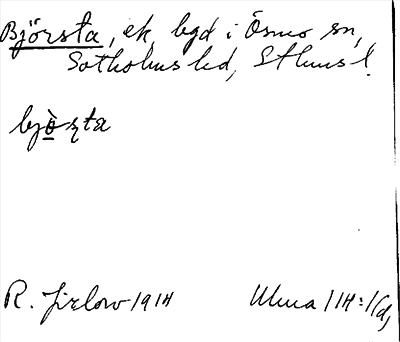 Björsta, ek. bgd i Ösmo sn,
Sotholms hd, Sthms l.
bjö̀ʂta
R. Jirlow 1914 Ulma 114:1(d)